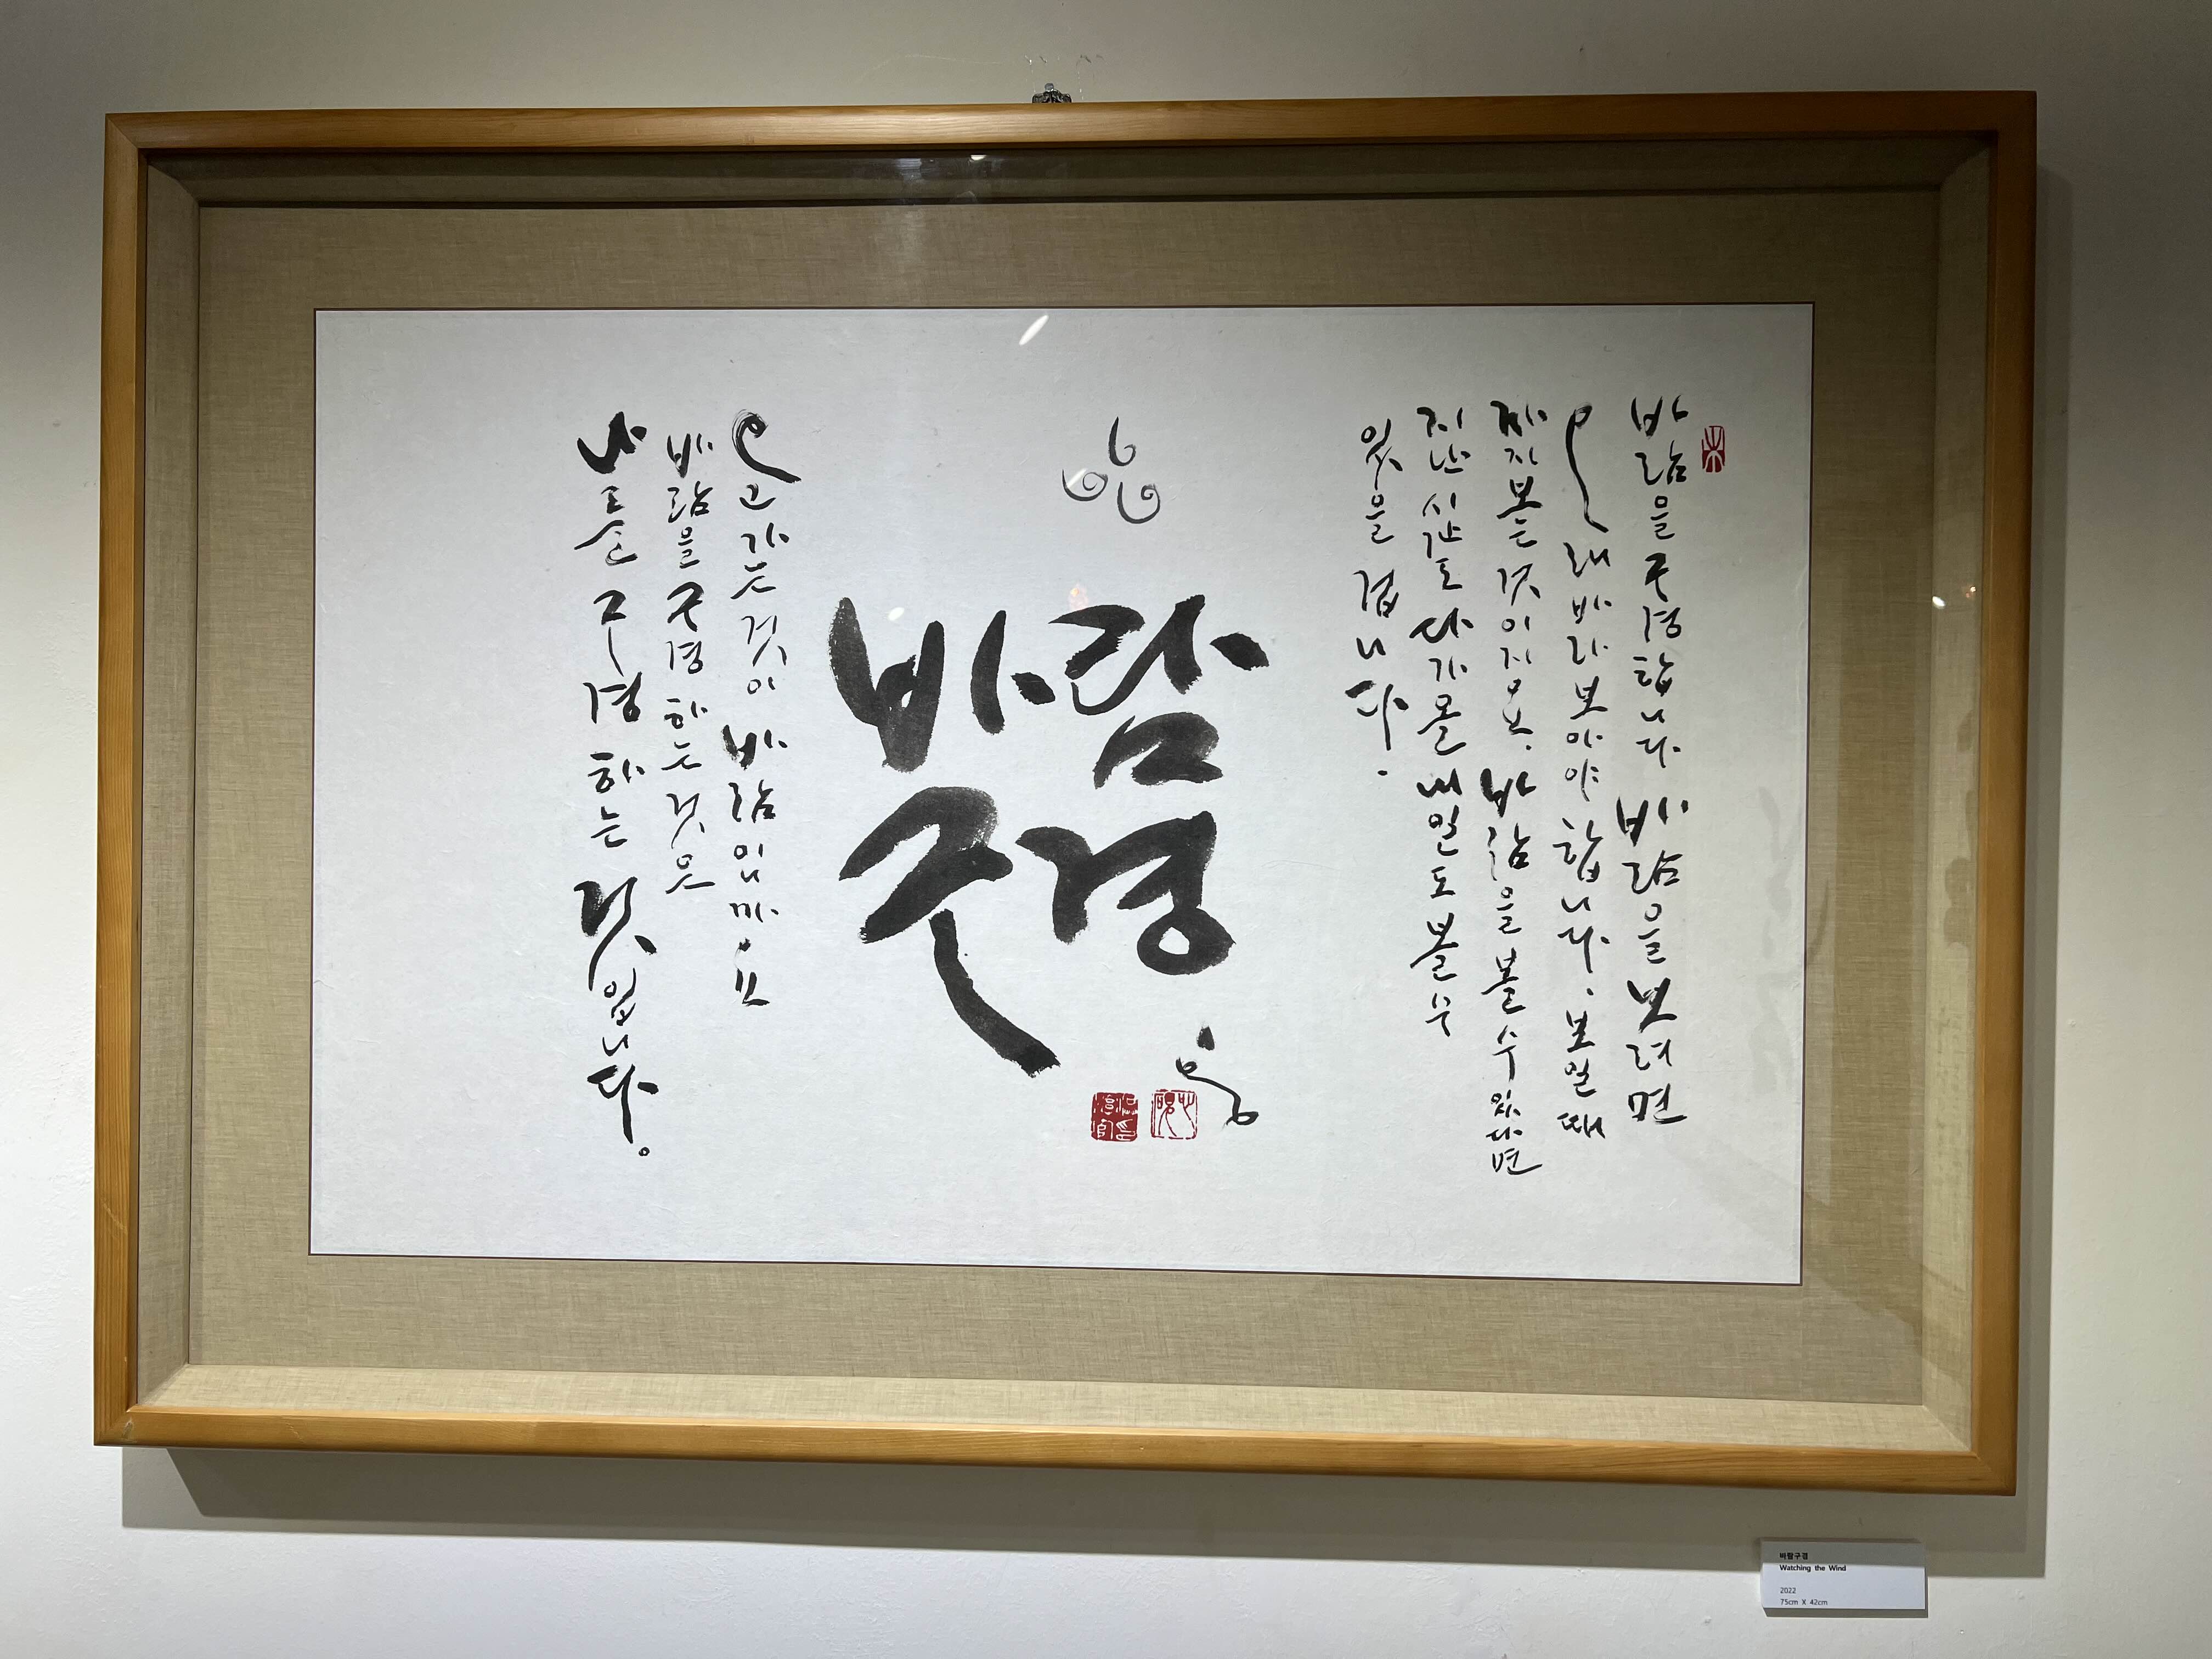 바람을 구경합니다 바람을 보려면
오래 바라보아야 합니다. 보일 때
까지 보는 것이지요. 바람을 볼 수 있다면
지난 시간도 다가올 내일도 볼 수
있을 겁니다.
바람
구경
오고 가는 것이 바람이니까요
바람을 구경하는 것은
나를 구경하는 것입니다.
바람구경
Watching the Wind
2022
75cm X 42cm